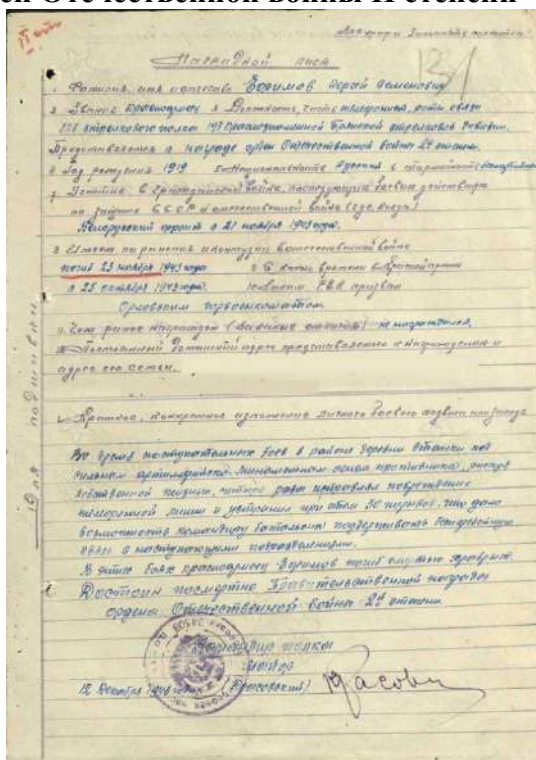 ей Отечественной войны II степени
131
Наградной лист
1. Фамилия, имя и отчество Ефимов Семенович
2. Звание красноармеец 3. Должность, часть телефонист роты связи
стрелкового полка 197 Краснознаменной Брянской стрелковой дивизии.
Представляется к награде орден Отечественной войны 2й степени.
4. Год рождения 1919 5. Национальность Русский 6.
7. Участие в гражданской войне, последующих боевых действиях
по защите СССР и отечественной войне (где, когда)
Белорусский фронт с 21 ноября 1943 года.
8. Имеет ли ранения и контузии в отечественной войне
погиб 23 ноября 1943 года 9. С какого времени в Красной армии
с 25 октября 1943 года. 10. Каким РВК призван
Орловским горвоенкоматом
11. Чем ранее награжден (за какие отличия) не награждался.
12. Постоянный домашний адрес представляемого к награждению и
адрес его семьи.
Краткое, конкретное изложение личного боевого подвига или заслуг
Во время наступательных боев в районе деревни под
сильным артиллерийским минометным огнем противника, рискуя
собственной жизнью, четыре раза исправлял повреждение
телефонной линии и устранил при этом 30 порывов, что дало
возможность командиру батальона поддерживать бесперебойную
связь с наступающими подразделениями.
В этих боях красноармеец Ефимов погиб смертью храбрых.
Достоин посмертно Правительственной награды
ордена Отечественной войны 2й степени.
Командир полка
майор
12 декабря 1943 года (Красовский)
Для подшивки